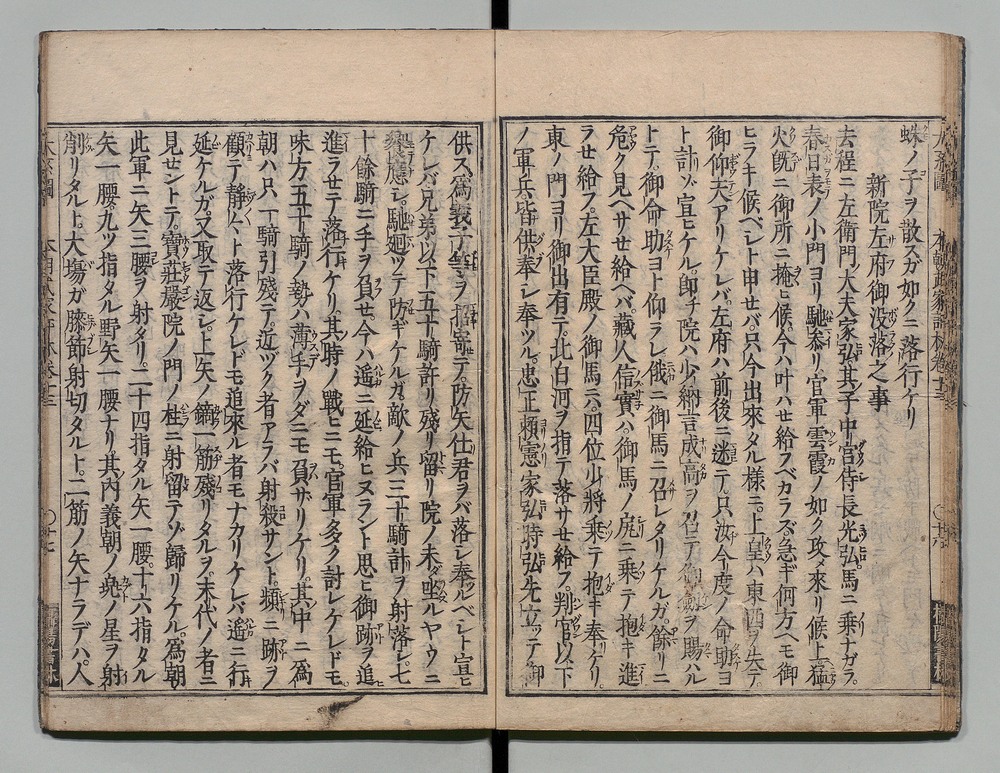 蛛ノ子ヲ散スガ如クニ落行ケリ
新院左府御没落之事
去程ニ左衛門ノ大夫家弘其ノ子中宮侍長光弘馬ニ乗ナガラ
春日表ノ小門ヨリ馳参リ官軍雲霞ノ如ク攻メ来リ候上猛
火既ニ御所ニ掩ヒ候今ハ叶ハセ給フベカラズ急ギ何方ヘモ御
ヒラキ候ベシト申セバ只今出來タル様ニ上皇ハ東西ヲ失テ
御仰天アリケレバ左府ハ前後ニ迷テ只汝今度ノ命助ヨ
ト計ゾ宣ヒケル即チ院ハ少納言成高ヲ召テ御劔ヲ賜ハル
トテ御命助ヨト仰ラレ俄ニ御馬ニ召レタリケルガ餘リニ
危ク見ヘサセ給ヘバ藏人信實ハ御馬ノ尻ニ乗テ抱キ進
ラセ給フ左大臣殿ノ御馬ニハ四位少将乗テ抱キ奉ケリ
東ノ門ヨリ御出有テ北白河ヲ指テ落サセ給フ判官以下
ノ軍兵皆供奉シ奉ツル忠正頼憲家弘時弘先立ッテ御
供ス爲義子等ヲ招寄テ防矢仕君ヲバ落シ奉ルベシト宣ヒ
ケレバ兄弟以下五十騎許リ残リ留リ院ノ未ダ坐ルヤウニ
シ馳廻ッテ防ギケルガ敵ノ兵三十騎計ヲ射落シ七
十餘騎ニ手ヲ負セ今ハ遥ニ延給ヒヌラント思ヒ御跡ヲ追
進ラセテ落行ケリ其ノ時ノ戰ヒニモ官軍多ク討レケレドモ
味方五十騎ノ勢ハ薄手ヲダニモ負サリケリ其中ニ爲
朝ハ只一騎引残テ近ヅク者アラバ射殺サント頻ニ跡ヲ
顧テ静々ト落行ケレドモ追來ル者モナカリケレバ遥ニ行
延ケルガ又取テ返シ上矢ノ鏑一筋残リタルヲ末代ノ者ニ
見セントテ寶莊嚴院ノ門ノ柱ニ射留テゾ歸リケル爲朝
此軍ニ矢三腰ヲ射タリ二十四指タル矢一腰十六指タル
矢一腰九ツ指タル野矢一腰ナリ其内義朝ノ堯ノ星ヲ射
削リタルト大塲ガ膝節射切タルト二筋ノ矢ナラデハ人